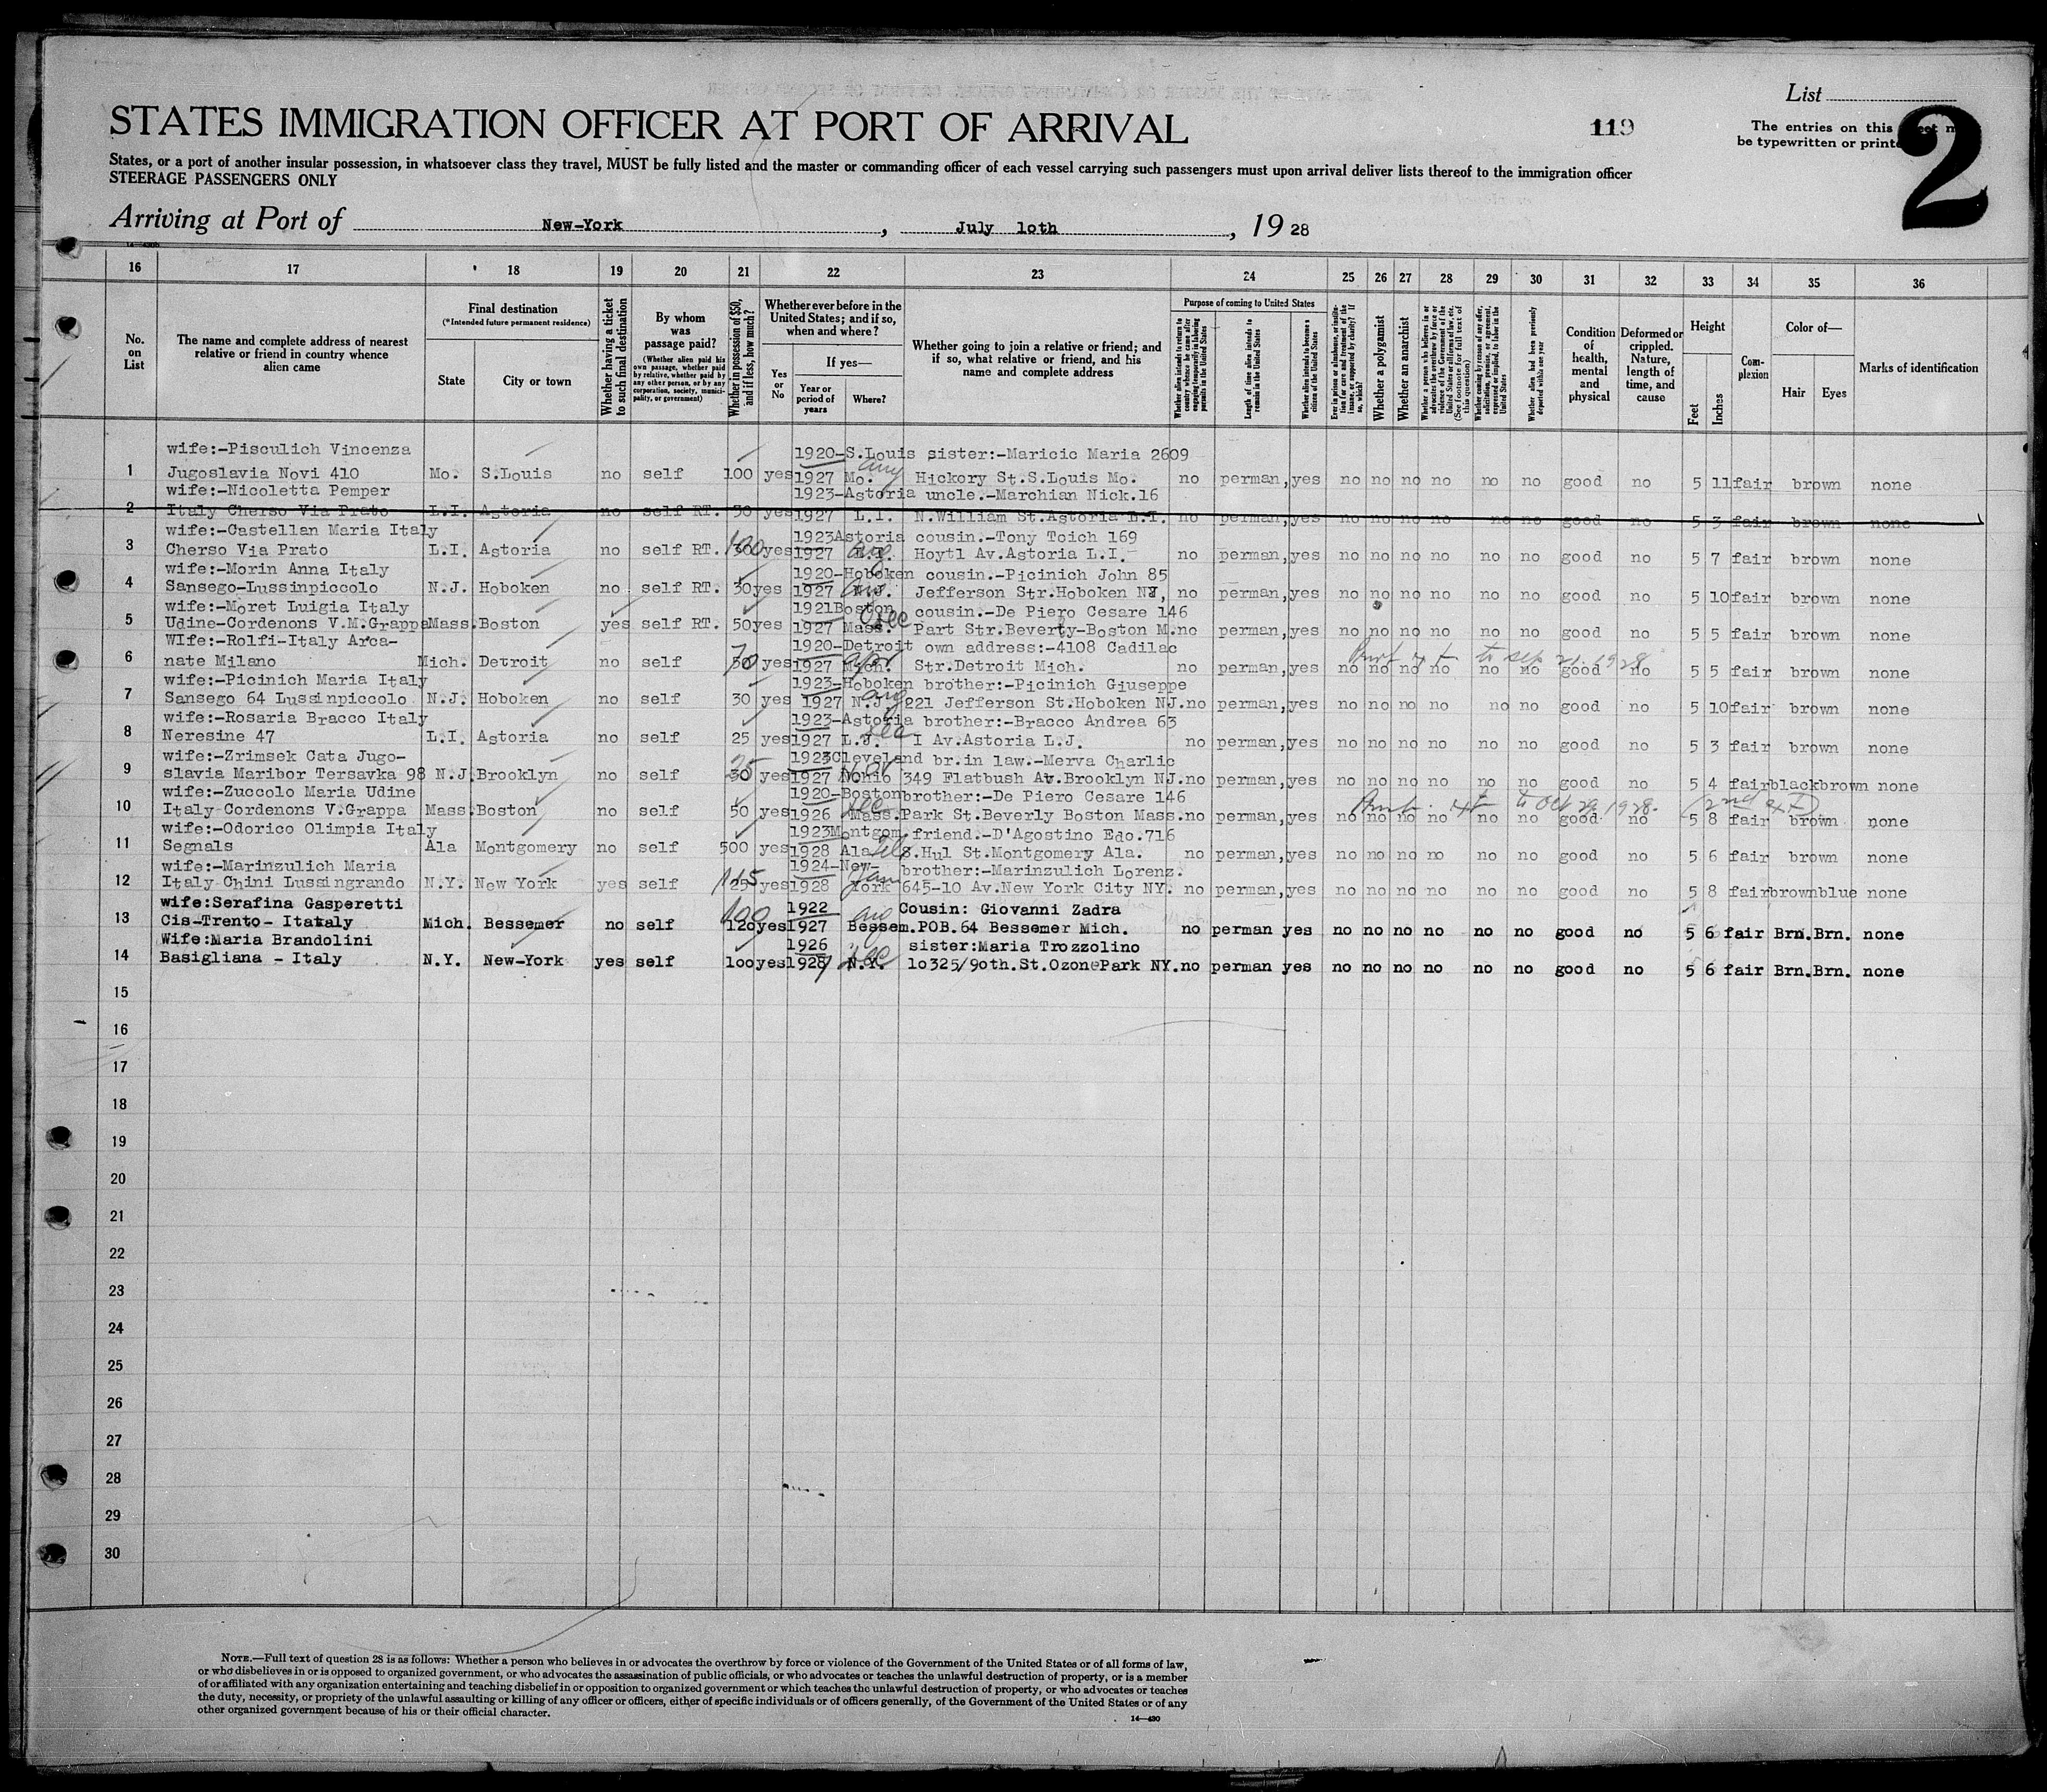 List
STATES IMMIGRATION OFFICER AT PORT OF ARRIVAL
119
The entries on this
be typewritten or printe
2
States, or a port of another insular possession, in whatsoever class they travel, MUST be fully listed and the master or commanding officer of each vessel carrying such passengers must upon arrival deliver lists thereof to the immigration officer
STEERAGE PASSENGERS ONLY
Arriving at Port of New-York, July 1oth, 1928
16 17 18 19 20 21 22 23 24 25 26 27 28 29 30 31 32 33 34 35 36
No. on List
The name and complete address of nearest relative or friend in country whence alien came
Final destination
(*Intended future permanent residence)
State
City or town
Whether having a ticket to such final destination
By whom was passage paid?
(Whether alien paid his own passage, whether paid by relative, whether paid by any other person, or by any corporation, society, municipality, or government)
Whether in possession of $50, and if less, how much?
Whether ever before in the United States; and if so, when and where?
Yes or No
If yes—
Year or period of years
Where?
Whether going to join a relative or friend; and if so, what relative or friend, and his name and complete address
Purpose of coming to United States
Whether alien intends to return to country whence he came after engaging temporarily in laboring pursuits in the United States
Length of time alien intends to remain in the United States
Whether alien intends to become a citizen of the United States
Ever in prison or almshouse, or institution for care and treatment of the insane, or supported by charity? If so, which?
Whether a polygamist
Whether an anarchist
Whether a person who believes in or advocates the overthrow by force or violence of the Government of the United States or all forms of law, etc. (See footnote for full text of this question)
Whether coming by reason of any offer, solicitation, promise, or agreement, expressed or implied, to labor in the United States
Whether alien had been previously deported within one year
Condition of health, mental and physical
Deformed or crippled. Nature, length of time, and cause
Height
Feet
Inches
Complexion
Color of—
Hair
Eyes
Marks of identification
wife:-Pisculich Vincenza 1920-S.Louis sister:-Maricic Maria 2609
1 Jugoslavia Novi 410 Mo. S.Louis no self 100 yes 1927 Mo. Hickory St.S.Louis Mo. no perman, yes no no no no no no good no 5 11 fair brown none
wife:-Nicoletta Pemper 1923-Astoria uncle.-Marchian Nick.16
2 Italy Cherso Via Prato L.I. Astoria no self RT. 30 yes 1927 L.I. N.William St.Astoria L.I. no perman, yes no no no no no no good no 5 3 fair brown none
wife:-Castellan Maria Italy 1923Astoria cousin.-Tony Toich 169
3 Cherso Via Prato L.I. Astoria no self RT. 30 100 yes 1927 L.I. Aug Hoytl Av.Astoria L.I. no perman, yes no no no no no no good no 5 7 fair brown none
wife:-Morin Anna Italy 1920-Hoboken cousin.-Picinich John 85
4 Sansego-Lussinpiccolo N.J. Hoboken no self RT. 30 yes 1927 N.J. Jefferson Str.Hoboken NJ, no perman, yes no no no no no no good no 5 10 fair brown none
wife:-Moret Luigia Italy 1921Boston cousin.-De Piero Cesare 146
5 Udine-Cordenons V.M.Grappa Mass. Boston yes self RT. 50 yes 1927 Mass. Dec Part Str.Beverty-Boston M. no perman, yes no no no no no no good no 5 5 fair brown none
WIfe:-Rolfi-Italy Arca- 1920-Detroit own address:-4108 Cadilac
Permit ext to Sep 21. 1928
6 nate Milano Mich. Detroit no self 50 70 yes 1927 Mich. Apr Str.Detroit Mich. no perman, yes no no no no no no good no 5 5 fair brown none
wife:-Picinich Maria Italy 1923-Hoboken brother:-Picinich Giuseppe
7 Sansego 64 Lussinpiccolo N.J. Hoboken no self 30 yes 1927 N.J. Aug 221 Jefferson St.Hoboken NJ. no perman, yes no no no no no no good no 5 10 fair brown none
wife:-Rosaria Bracco Italy 1923-Astoria brother:-Bracco Andrea 63
8 Neresine 47 L.I. Astoria no self 25 yes 1927 L.J. Dec I Av.Astoria L.J. no perman, yes no no no no no no good no 5 3 fair brown none
wife:-Zrimsek Cata Jugo- 1923Cleveland br.in law.-Merva Charlic
9 slavia Maribor Tersavka 98 N.J. Brooklyn no self 30 35 yes 1927 Ohio Nov 349 Flatbush Av.Brooklyn NJ. no perman, yes no no no no no no good no 5 4 fair black brown none
wife:-Zuccolo Maria Udine 1920-Boston brother:-De Piero Cesare 146
Permit. ext to Oct 29 1928. (2nd ext)
10 Italy Cordenons V.Grappa Mass. Boston no self 50 yes 1926 Mass. Dec Park St.Beverly Boston Mass. no perman, yes no no no no no no good no 5 8 fair brown none
wife:-Odorico Olimpia Italy 1923Montgom. friend.-D'Agostino Edo.716
11 Segnals Ala Montgomery no self 500 yes 1928 Ala S.Hul St.Montgomery Ala. no perman, yes no no no no no no good no 5 6 fair brown none
wife:-Marinzulich Maria 1924-New- brother:-Marinzulich Lorenz.
12 Italy Chini Lussingrando N.Y. New York yes self 25 yes 1928 York Jan 645-10 Av.New York City NY. no perman, yes no no no no no no good no 5 8 fair brown blue none
wife:Serafina Gasperetti 1922 Cousin: Giovanni Zadra
13 Cis-Trento- Itataly Mich. Bessemer no self 12o 100 yes 1927 Bessem. Aug POB.64 Bessemer Mich. no perman yes no no no no no no good no 5 6 fair Brn. Brn. none
Wife:Maria Brandolini 1926 sister:Maria Trozzolino
14 Basigliana - Italy N.Y. New-York yes self 1oo yes 1927 N.Y. Dec 1o325/9oth.St.Ozone Park NY. no perman yes no no no no no no good no 5 6 fair Brn. Brn. none
15
16
17
18
19
20
21
22
23
24
25
26
27
28
29
30
NOTE.—Full text of question 28 is as follows: Whether a person who believes in or advocates the overthrow by force or violence of the Government of the United States or of all forms of law,
or who disbelieves in or is opposed to organized government, or who advocates the assassination of public officials, or who advocates or teaches the unlawful destruction of property, or is a member
of or affiliated with any organization entertaining and teaching disbelief in or opposition to organized government or which teaches the unlawful destruction of property, or who advocates or teaches
the duty, necessity, or propriety of the unlawful assaulting or killing of any officer or officers, either of specific individuals or of officers generally, of the Government of the United States or of any
other organized government because of his or their official character.
14—430